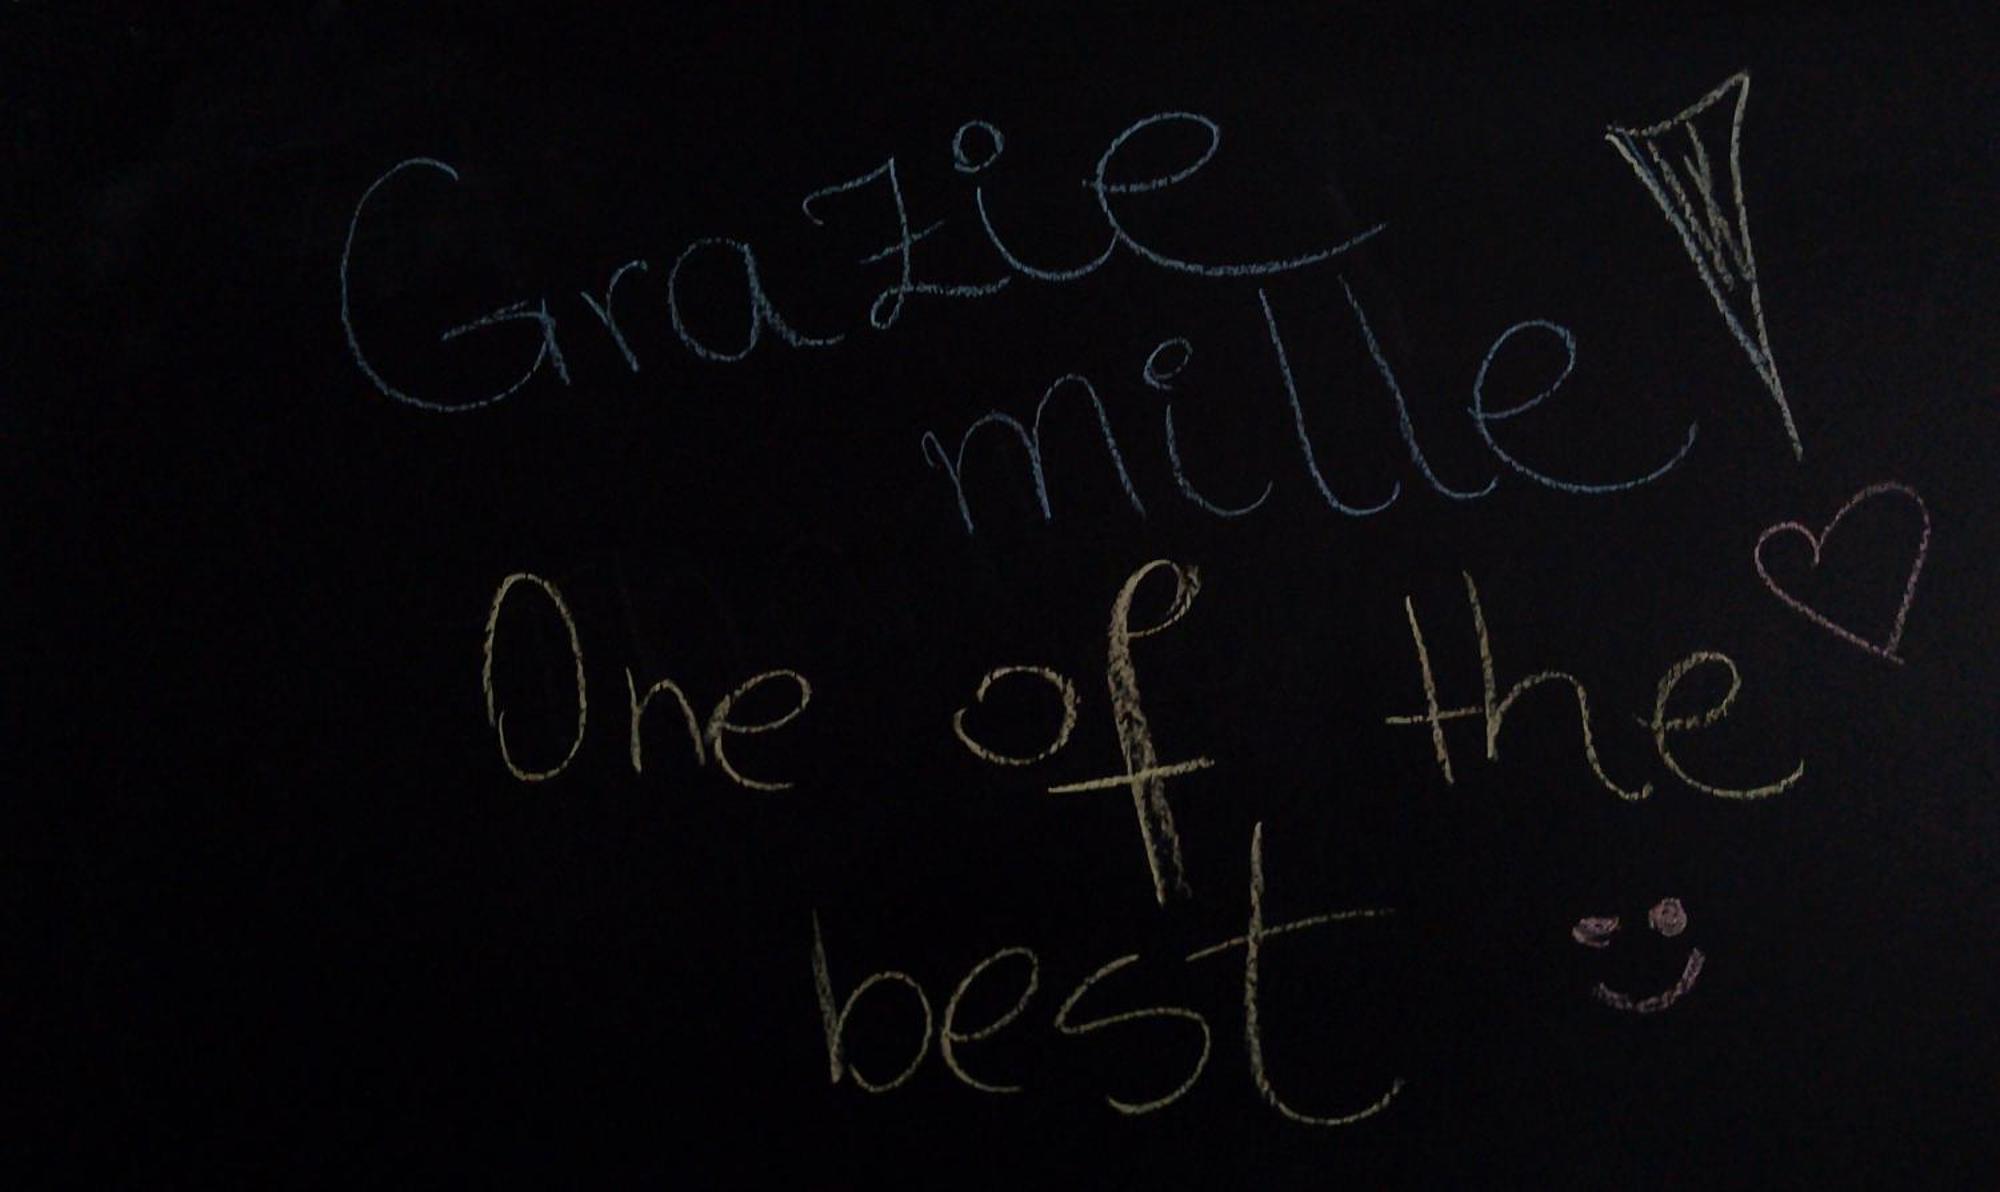 Grazie
mille!
One of the
best